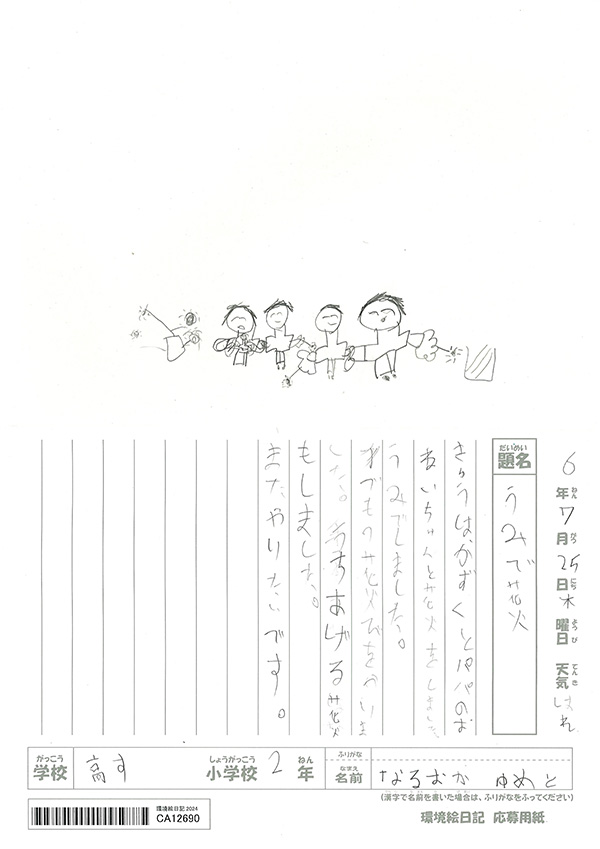 6年7月25日木曜日 天気はれ
ねん がつ にち ようび てんき
だいめい
題名 うみで花火
きょうはかずくとパパのお
おいちゃんと花火をしました
うみでしました。
手でもつ花火
した。うちあげる花火
もしました。
またやりたいです。
がっこう しょうがっこう ねん ふりがな
学校 高す 小学校 2年 なまえ 名前 なるおか ゆめと
(漢字で名前を書いた場合は、ふりがなをふってください)
環境絵日記2024
CA12690
環境絵日記 応募用紙